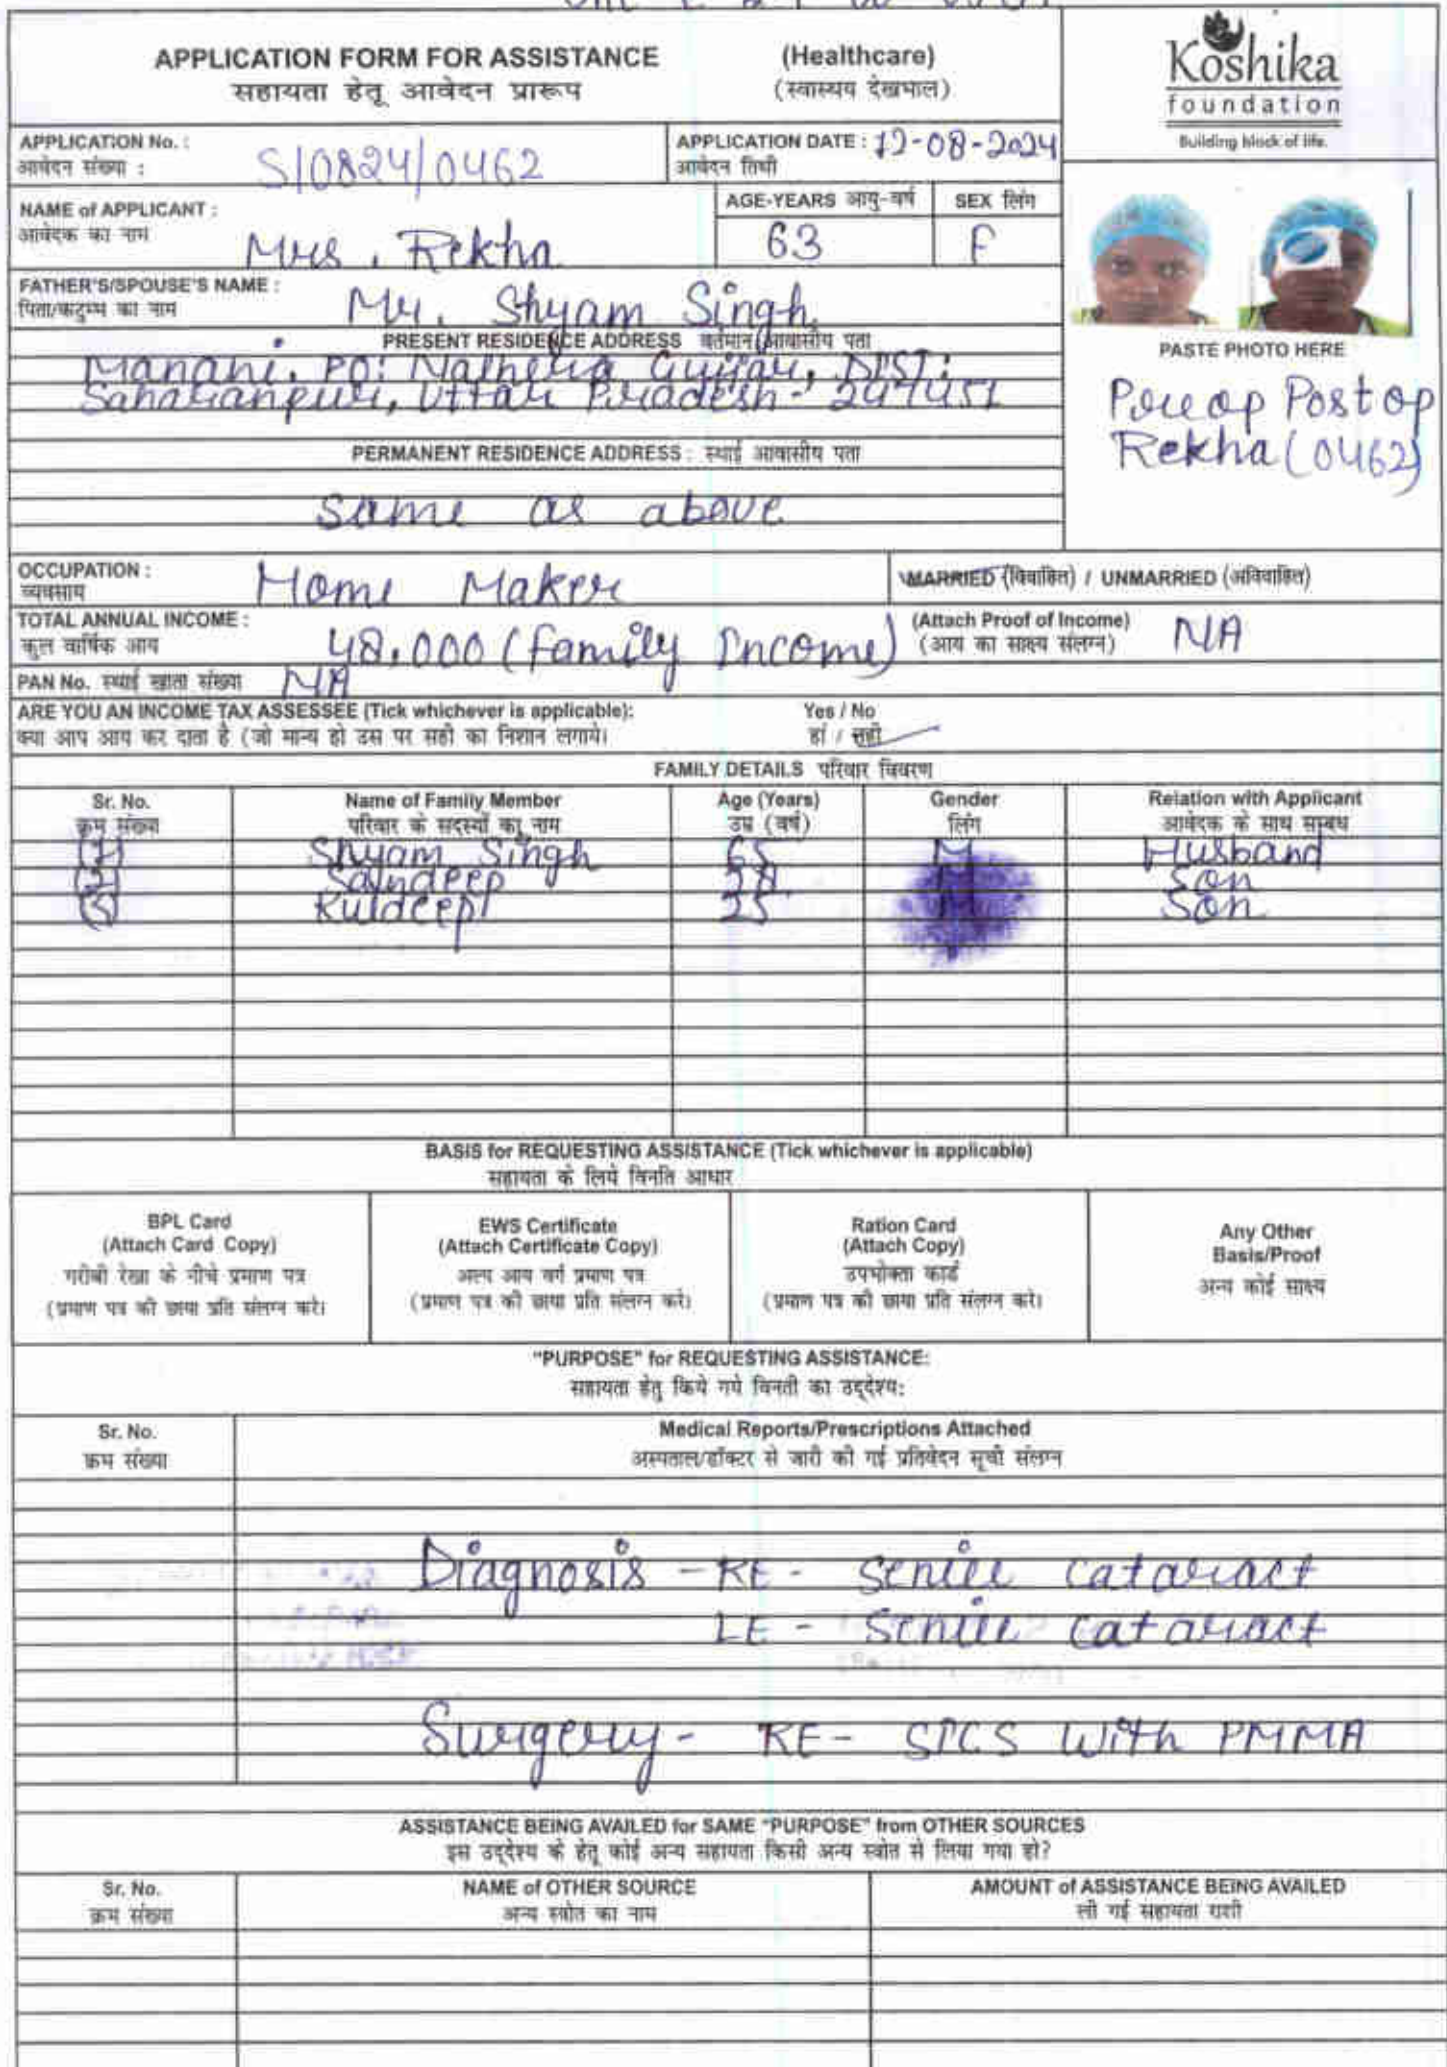 APPLICATION FORM FOR ASSISTANCE (Healthcare)
सहायता हेतू आवेदन प्रारूप (स्वास्थ्य देखभाल)
Koshika
foundation
Building block of life.
APPLICATION No. : S/0824/0462
आवेदन संख्या :
APPLICATION DATE : 12-08-2024
आवेदन तिथी
NAME of APPLICANT : Mrs. Rekha
आवेदक का नाम
AGE-YEARS आयु-वर्ष 63
SEX लिंग F
FATHER'S/SPOUSE'S NAME : Mr. Shyam Singh
पिता/कटुम्ब का नाम
PRESENT RESIDENCE ADDRESS वर्तमान आवासीय पता
Manani, PO: Gujjar, DIST:
Saharanpur, Uttar Pradesh - 247451
PERMANENT RESIDENCE ADDRESS : स्थाई आवासीय पता
Same as above
PASTE PHOTO HERE
Preop Postop
Rekha (0462)
OCCUPATION : Home Maker
व्यवसाय
MARRIED (विवाहित) / UNMARRIED (अविवाहित)
TOTAL ANNUAL INCOME : 48,000 (family Income)
कुल वार्षिक आय
(Attach Proof of Income) NA
(आय का साक्ष्य संलग्न)
PAN No. स्थाई खाता संख्या NA
ARE YOU AN INCOME TAX ASSESSEE (Tick whichever is applicable): Yes / No
क्या आप आय कर दाता है (जो मान्य हो उस पर सही का निशान लगाये। हां / नहीं
FAMILY DETAILS परिवार विवरण
Sr. No. Name of Family Member Age (Years) Gender Relation with Applicant
क्रम संख्या परिवार के सदस्यों का नाम उम्र (वर्ष) लिंग आवेदक के साथ सम्बंध
(1) Shyam Singh 65 M Husband
(2) Sandeep Son
(3) Kuldeep 25 Son
BASIS for REQUESTING ASSISTANCE (Tick whichever is applicable)
सहायता के लिये विनति आधार
BPL Card
(Attach Card Copy)
गरीबी रेखा के नीचे प्रमाण पत्र
(प्रमाण पत्र की छाया प्रति संलग्न करे।
EWS Certificate
(Attach Certificate Copy)
अल्प आय वर्ग प्रमाण पत्र
(प्रमाण पत्र की छाया प्रति संलग्न करे।
Ration Card
(Attach Copy)
उपभोक्ता कार्ड
(प्रमाण पत्र की छाया प्रति संलग्न करे।
Any Other
Basis/Proof
अन्य कोई साक्ष्य
"PURPOSE" for REQUESTING ASSISTANCE:
सहायता हेतु किये गये विनती का उद्देश्य:
Sr. No. Medical Reports/Prescriptions Attached
क्रम संख्या अस्पताल/डॉक्टर से जारी की गई प्रतिवेदन सूची संलग्न
Diagnosis - RE - Senile cataract
LE - Senile cataract
Surgery - RE - SICS with PMMA
ASSISTANCE BEING AVAILED for SAME "PURPOSE" from OTHER SOURCES
इस उद्देश्य के हेतू कोई अन्य सहायता किसी अन्य स्त्रोत से लिया गया हो?
Sr. No. NAME of OTHER SOURCE AMOUNT of ASSISTANCE BEING AVAILED
क्रम संख्या अन्य स्त्रोत का नाम ली गई सहायता राशी